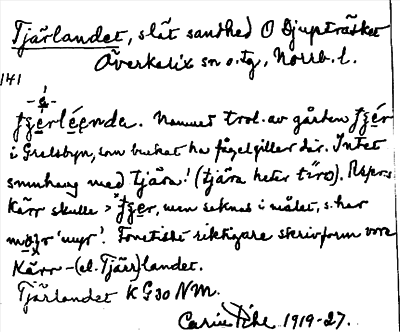 Tjärlandet, slåt sandhed O Djupträsket
Överkalix sn o. tg., Norrb. l.
141
Namnet trol. av gården
i Grelsbyn, som brukat ha fågelgiller där. Intet
smnhang med tjära! (tjära heter tĭro). Aspr.
Kärr skulle > , men saknas i målet, s. har
'myr'. Fonetiskt riktigare skrivform vore
Kärr-(el. Tjärr)landet.
Tjärlandet K G30 NM.
Carin Pihl 1919-27.